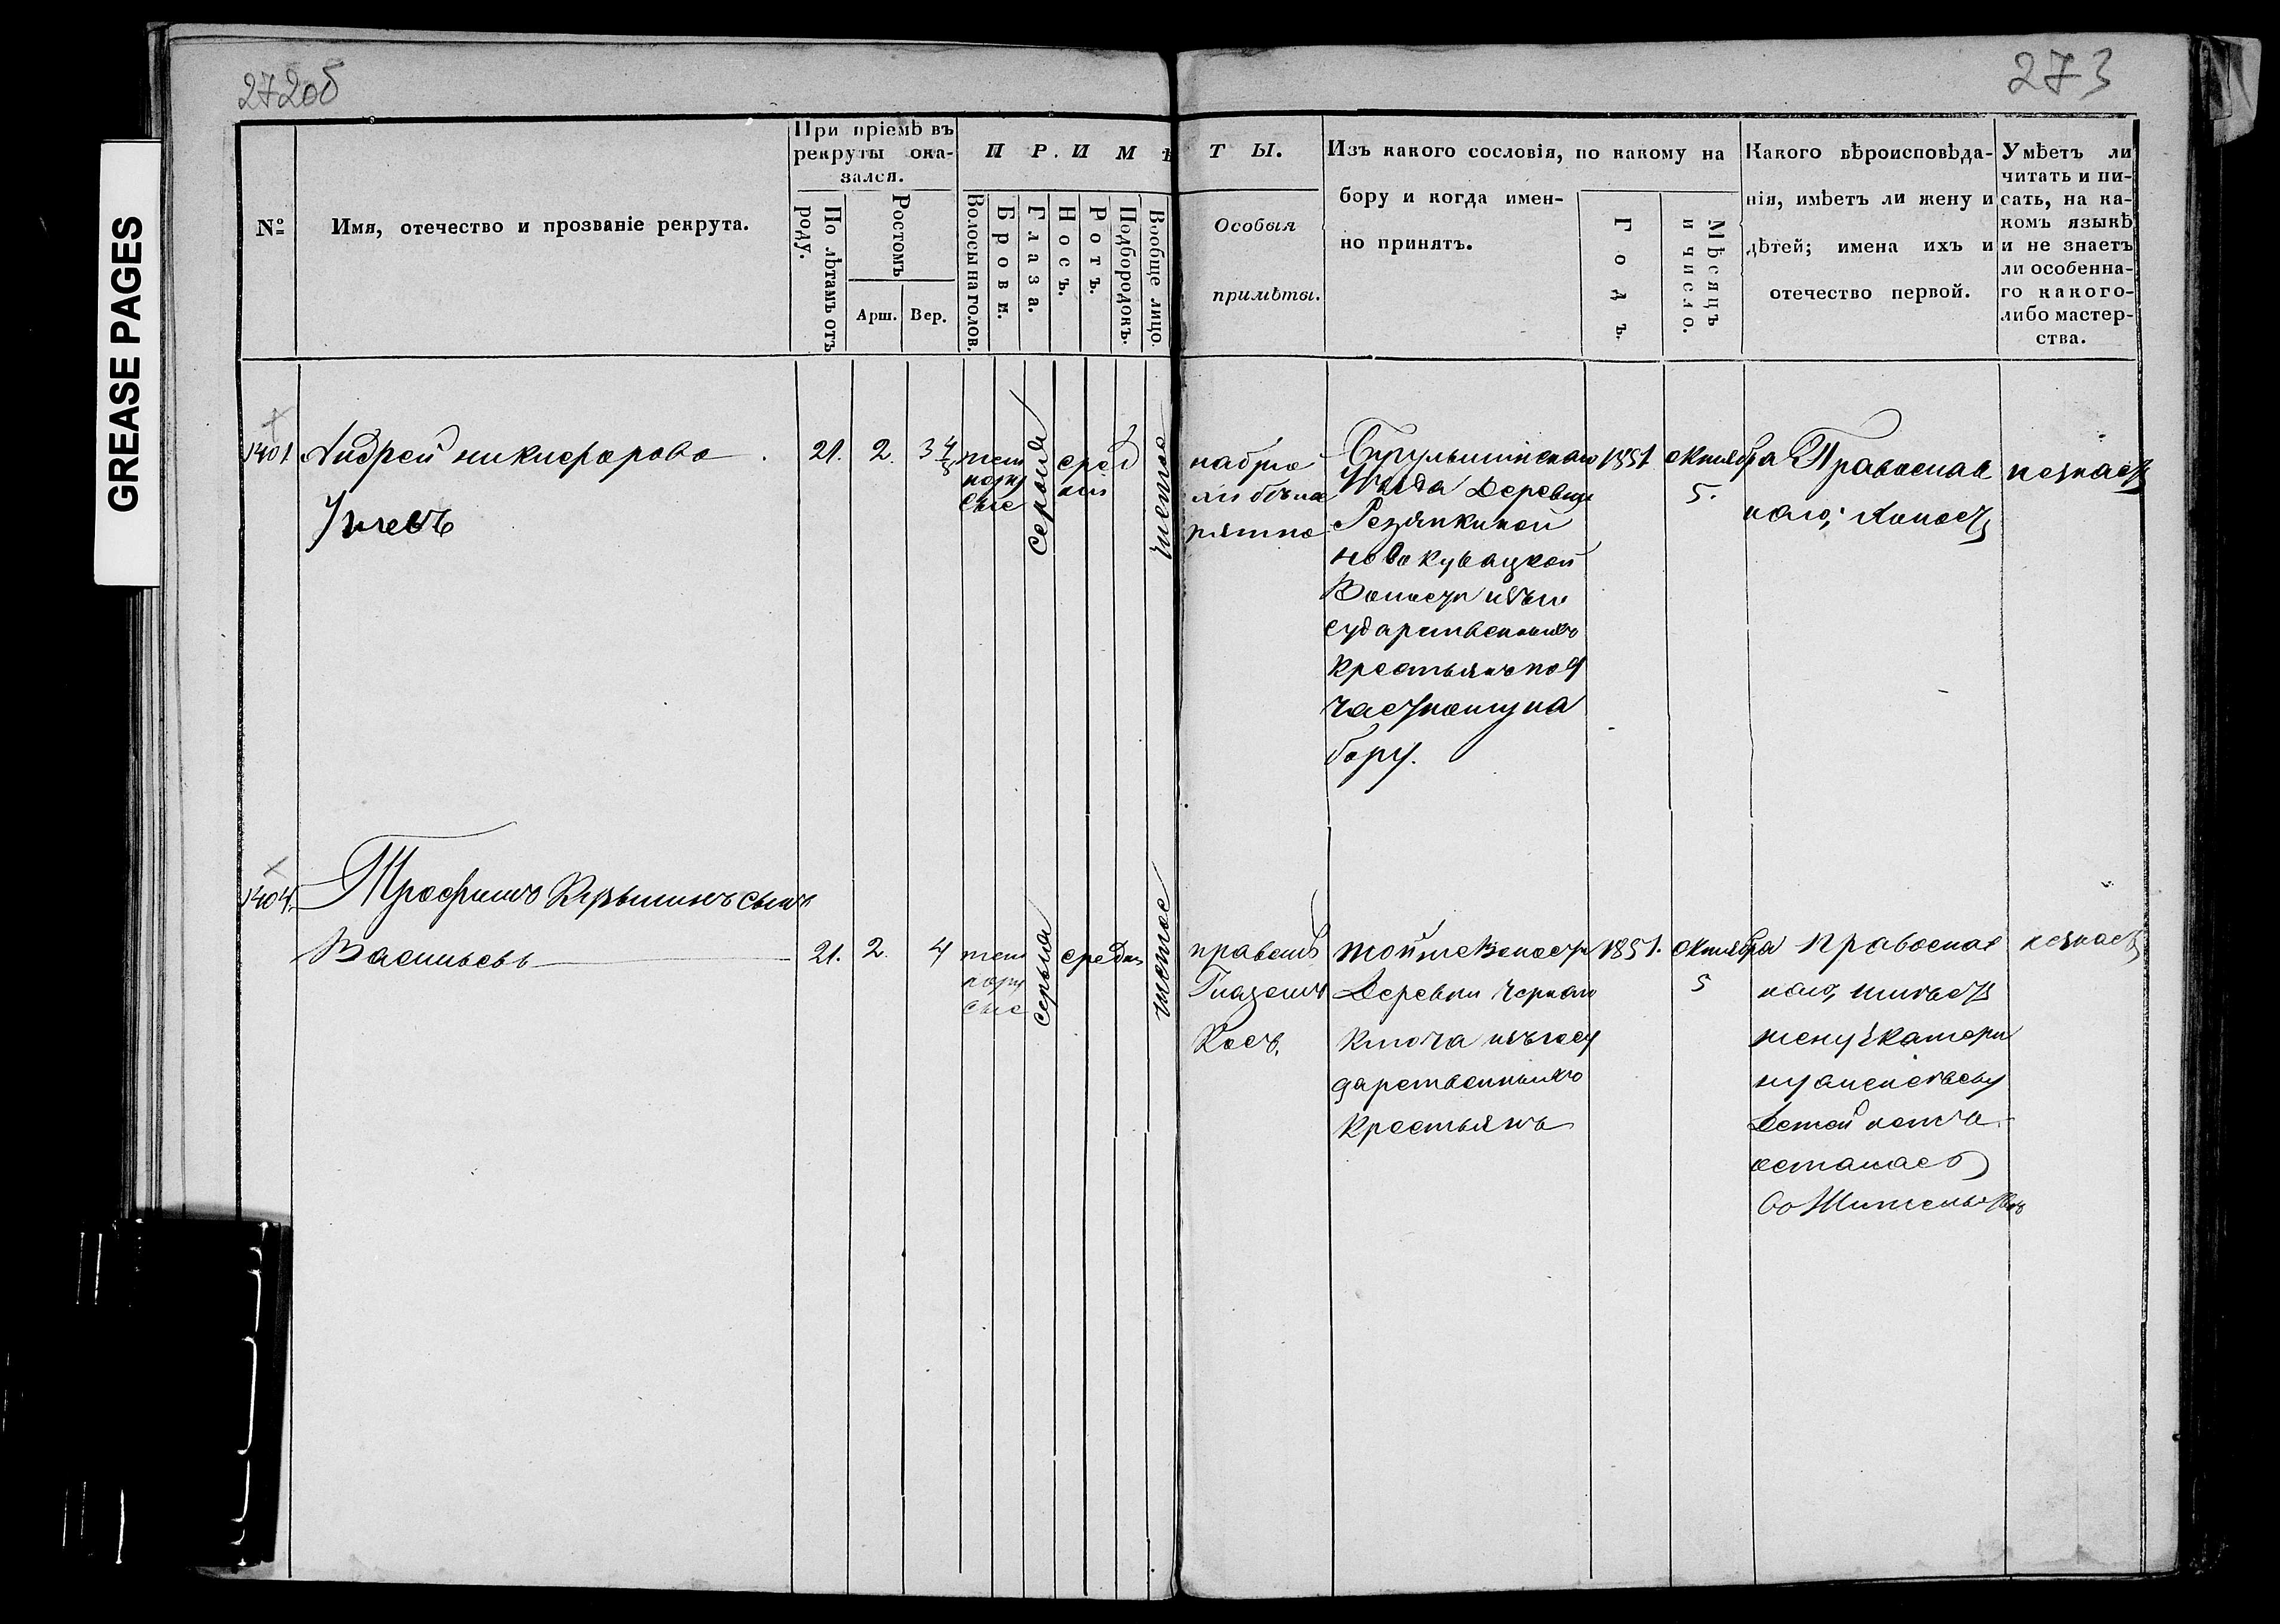 272об
273
GREASE PAGES
№
Имя, отечество и прозваніе рекрута.
При пріемѣ въ
рекруты ока-
зался.
По лѣтамъ отъ
роду.
Ростомъ
Арш.
Вер.
П Р И М Ѣ Т Ы.
Волосы на голов.
Брови.
Глаза.
Носъ.
Ротъ.
Подбородокъ.
Вообще лицо.
Особыя
примѣты.
Изъ какого сословія, по какому на
бору и когда имен-
но принятъ.
Годъ.
Мѣсяцъ
и число.
Какого вѣроисповѣда-
нія, имѣетъ ли жену и
дѣтей; имена ихъ и
отечество первой.
Умѣетъ ли
читать и пи-
сать, на ка-
комъ языкѣ
и не знаетъ
ли особенна-
го какого-
либо мастер-
ства.
1401
Андрей никифоровъ
21.
2.
3 4/8
темно
русые
серыя
сред
ніи
чистое
на брю
хи бѣлое
пятно
Бугульминскаго
Уѣзда Деревни
Резяпкиной
новокувацкой
Волости изъ го
сударственныхъ
крестьянъ по 9
частному на
бору.
1851
октября
5.
Православ
наго, холостъ
незнаетъ
1404.
Трофимъ Кузьминъ сынъ
Васильевъ
21.
2.
4
темно
русые
серыя
средніи
чистое
правымъ
Глазомъ
Косъ.
той же волости
Деревни Чернаго
Ключа изъ госу
дарственныхъ
крестьянъ
1851.
октября
5
Православ
наго, имѣетъ
жену Екатери
ну Алексѣеву
Детей нетъ
осталась
въ Жительствѣ
незнаетъ